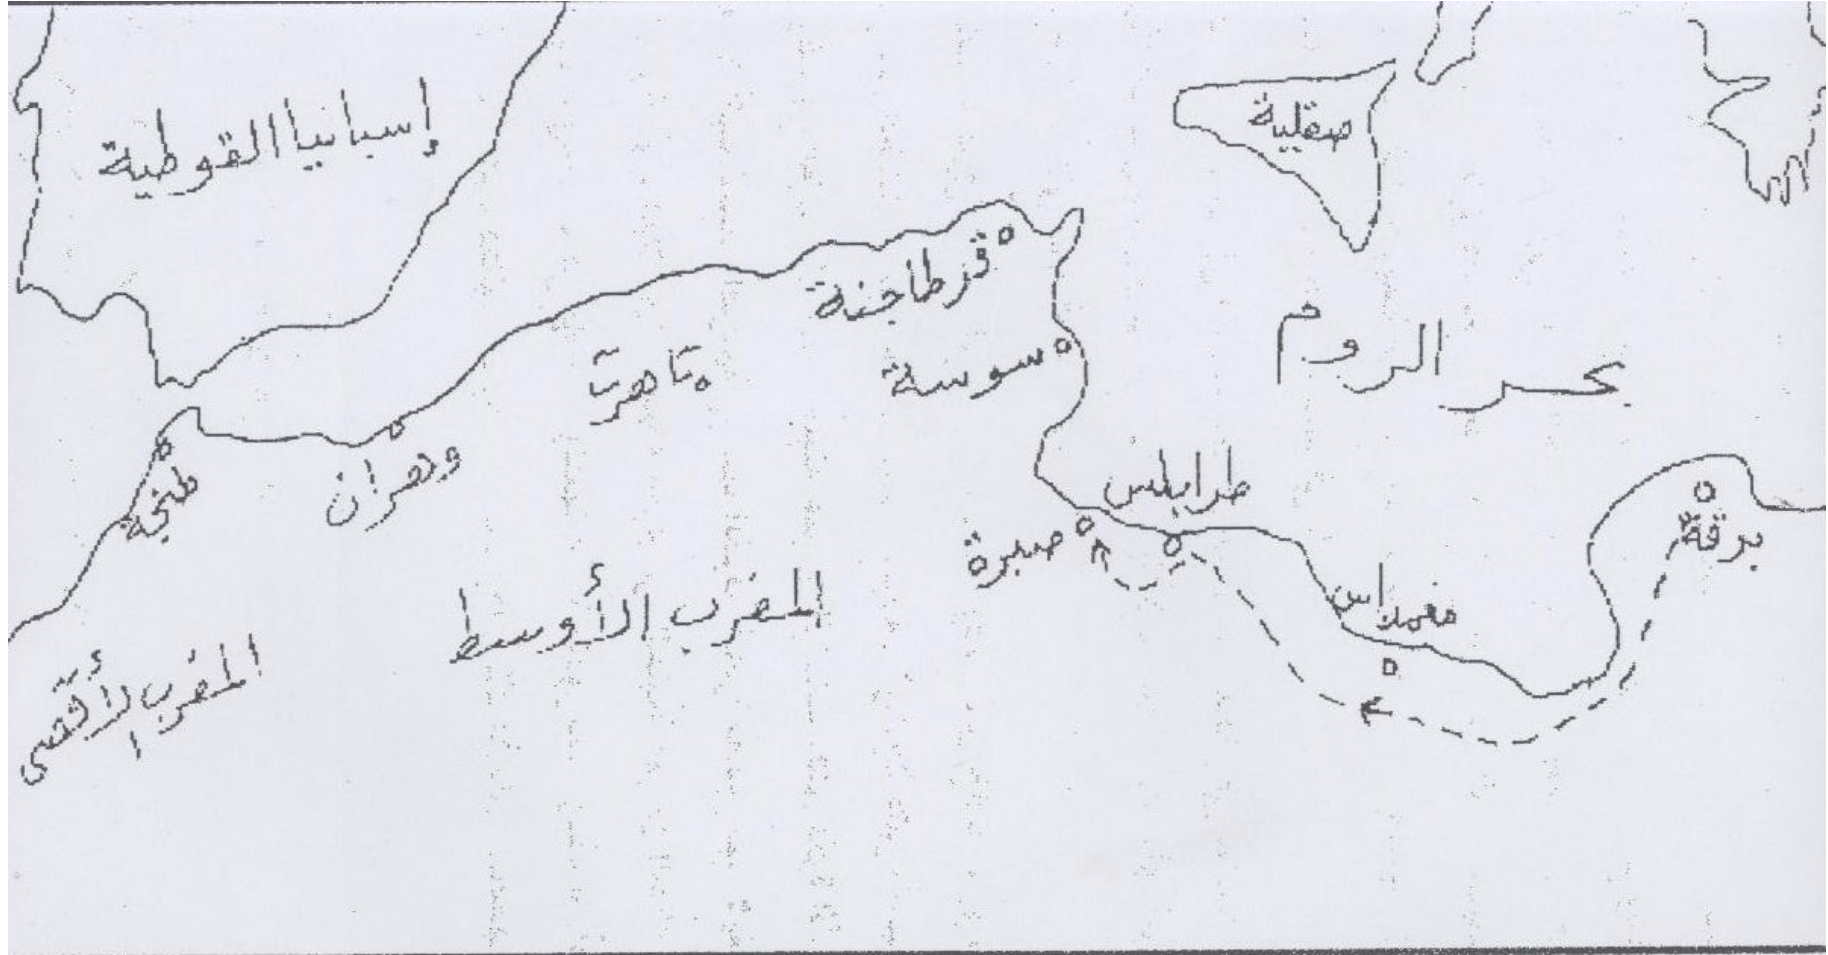 إسبانيا القوطية
صقلية
قرطاجنة
سوسة
تاهرت
بحر الروم
وهران
طنجة
طرابلس
صبرة
برقة
مغمداس
المغرب الأوسط
المغرب الأقصى